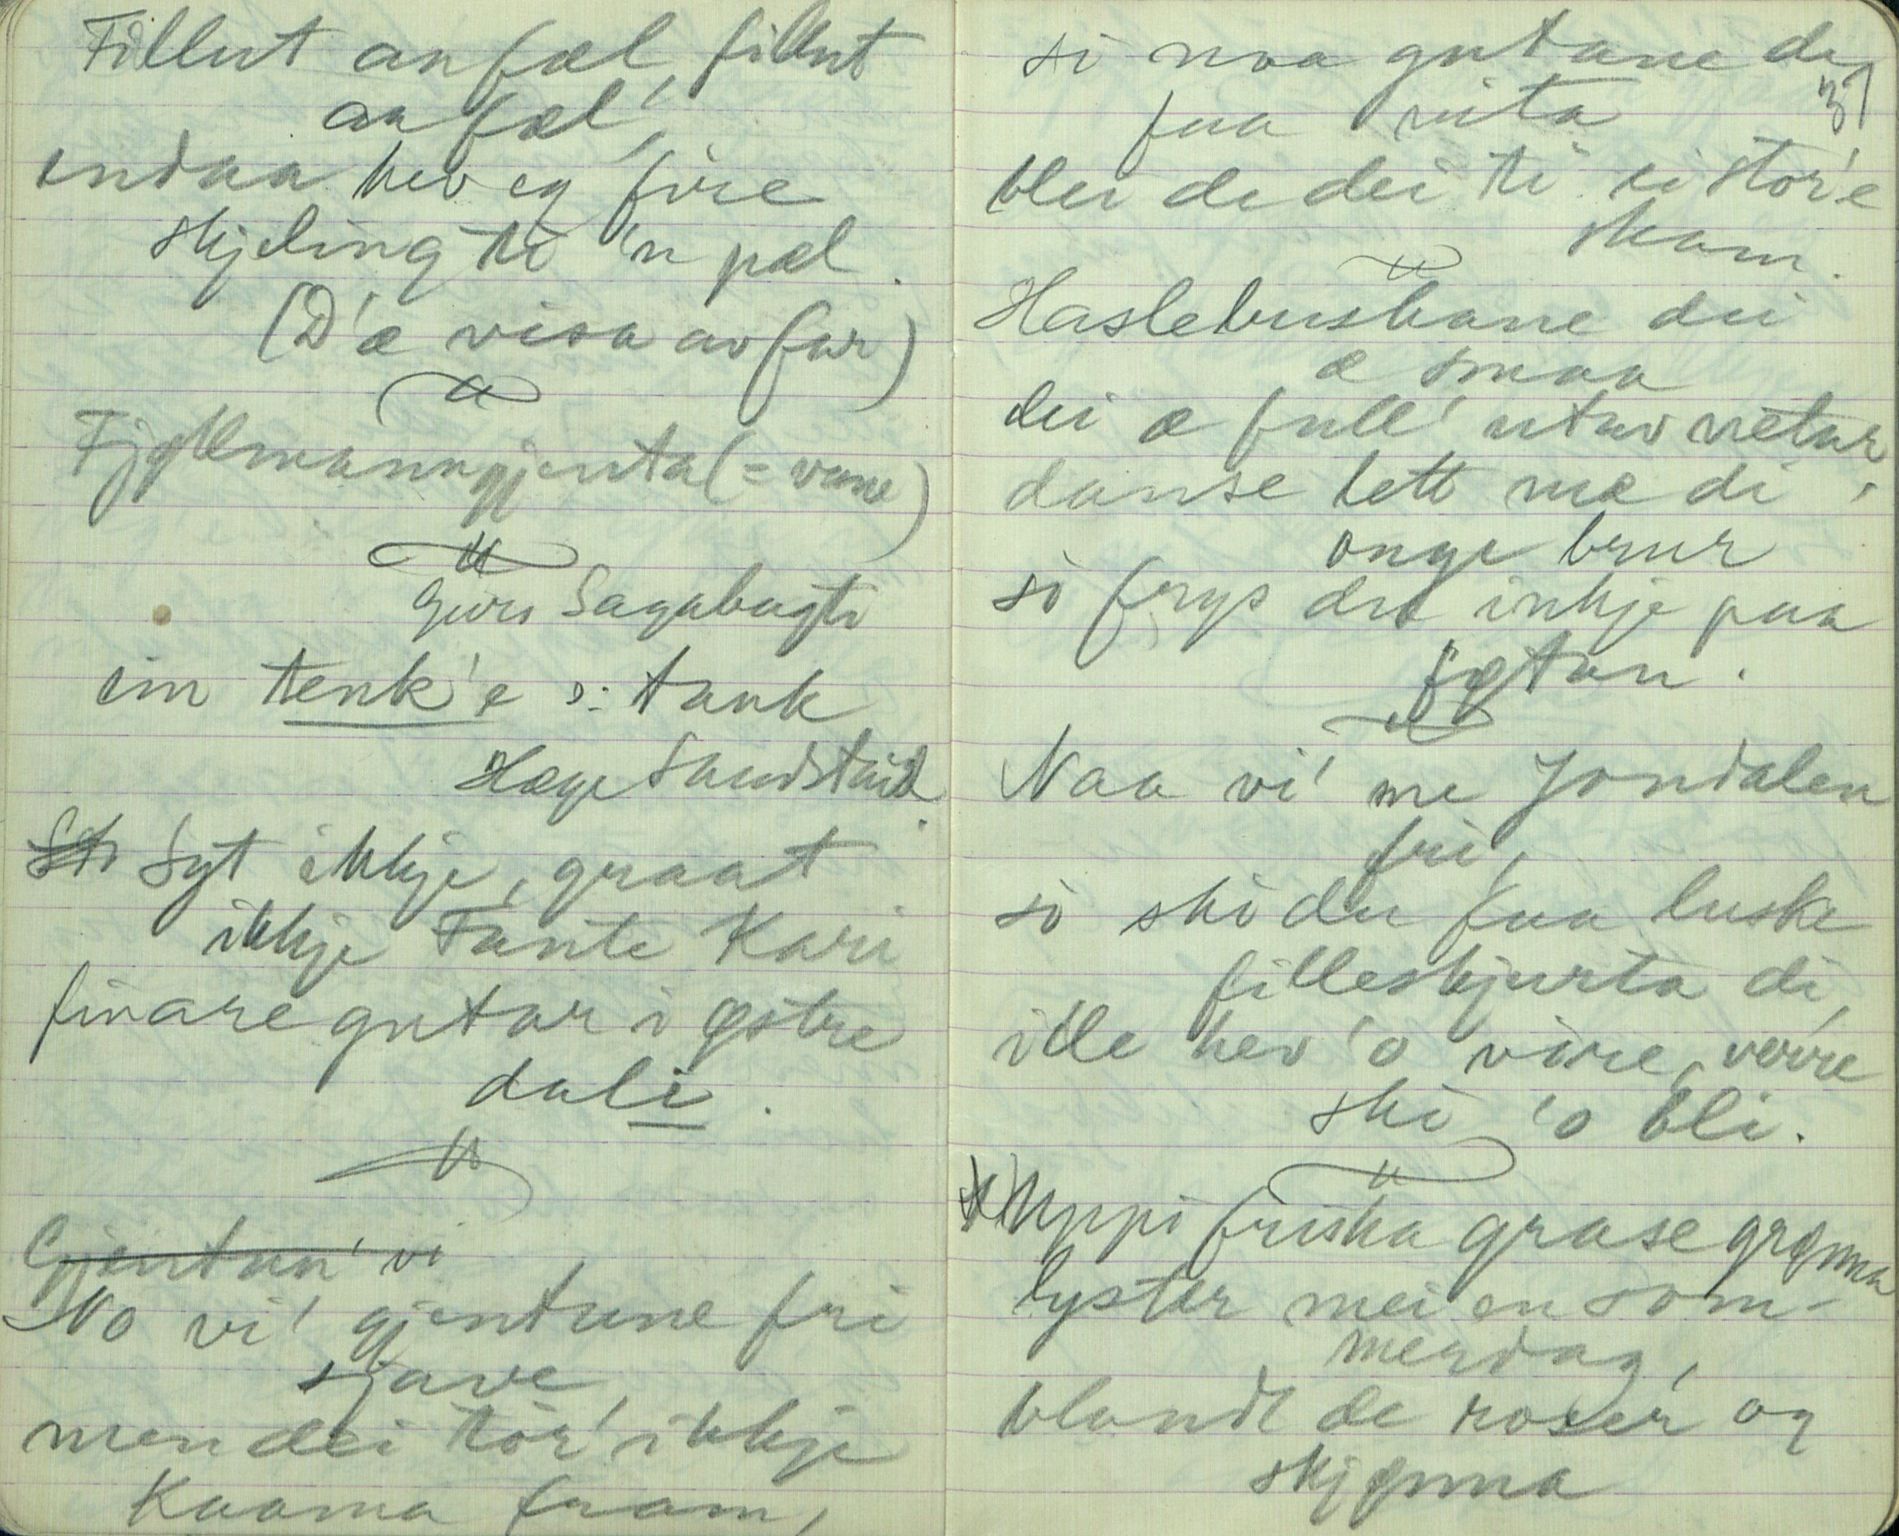 Fillut aa fæl, fillut
aa fæl,
endaa hev eg fire
skjeling ti 'n pæl.
(D'æ visa av far)
Fjøllmanngjenta (= vane)
Guro Sagabugti
ein tenk'e ɔ: tank
Hæge Sandstuid.
Syt ikkje, graat
ikkje Tante Kari
finare gutar i østre
dali.
Gjentun' vi
No vi' gjentune fri
sjave,
men dei tør' ikkje
kaama fram,
si naa gutane de
37
faa vita
blei de dei ti ei stor'e
skam.
Haslebuskane dei
æ smaa
dei æ full' utav netar,
danse lett mæ di
onge brur
so frys du inkje paa
føtan.
Naa vi' me Jondalen
fri,
so ski du faa luske
filleskjurta di,
ille hev 'o vøre, verre
ski 'o bli.
Uppi friska grase grønna
lyster mei en som-
merdag,
blandt de roser og
skjønna